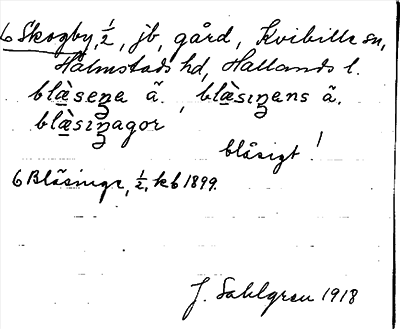 6 Skogby, ½, jb, gård, Kvibille sn,
Halmstads hd, Hallands l.
blæ̀seŋa ä. , blæ̀siŋens ä.
blæ̀siŋagor
blåsigt !
6 Bläsinge, ½, kb 1899.
J. Sahlgren 1918